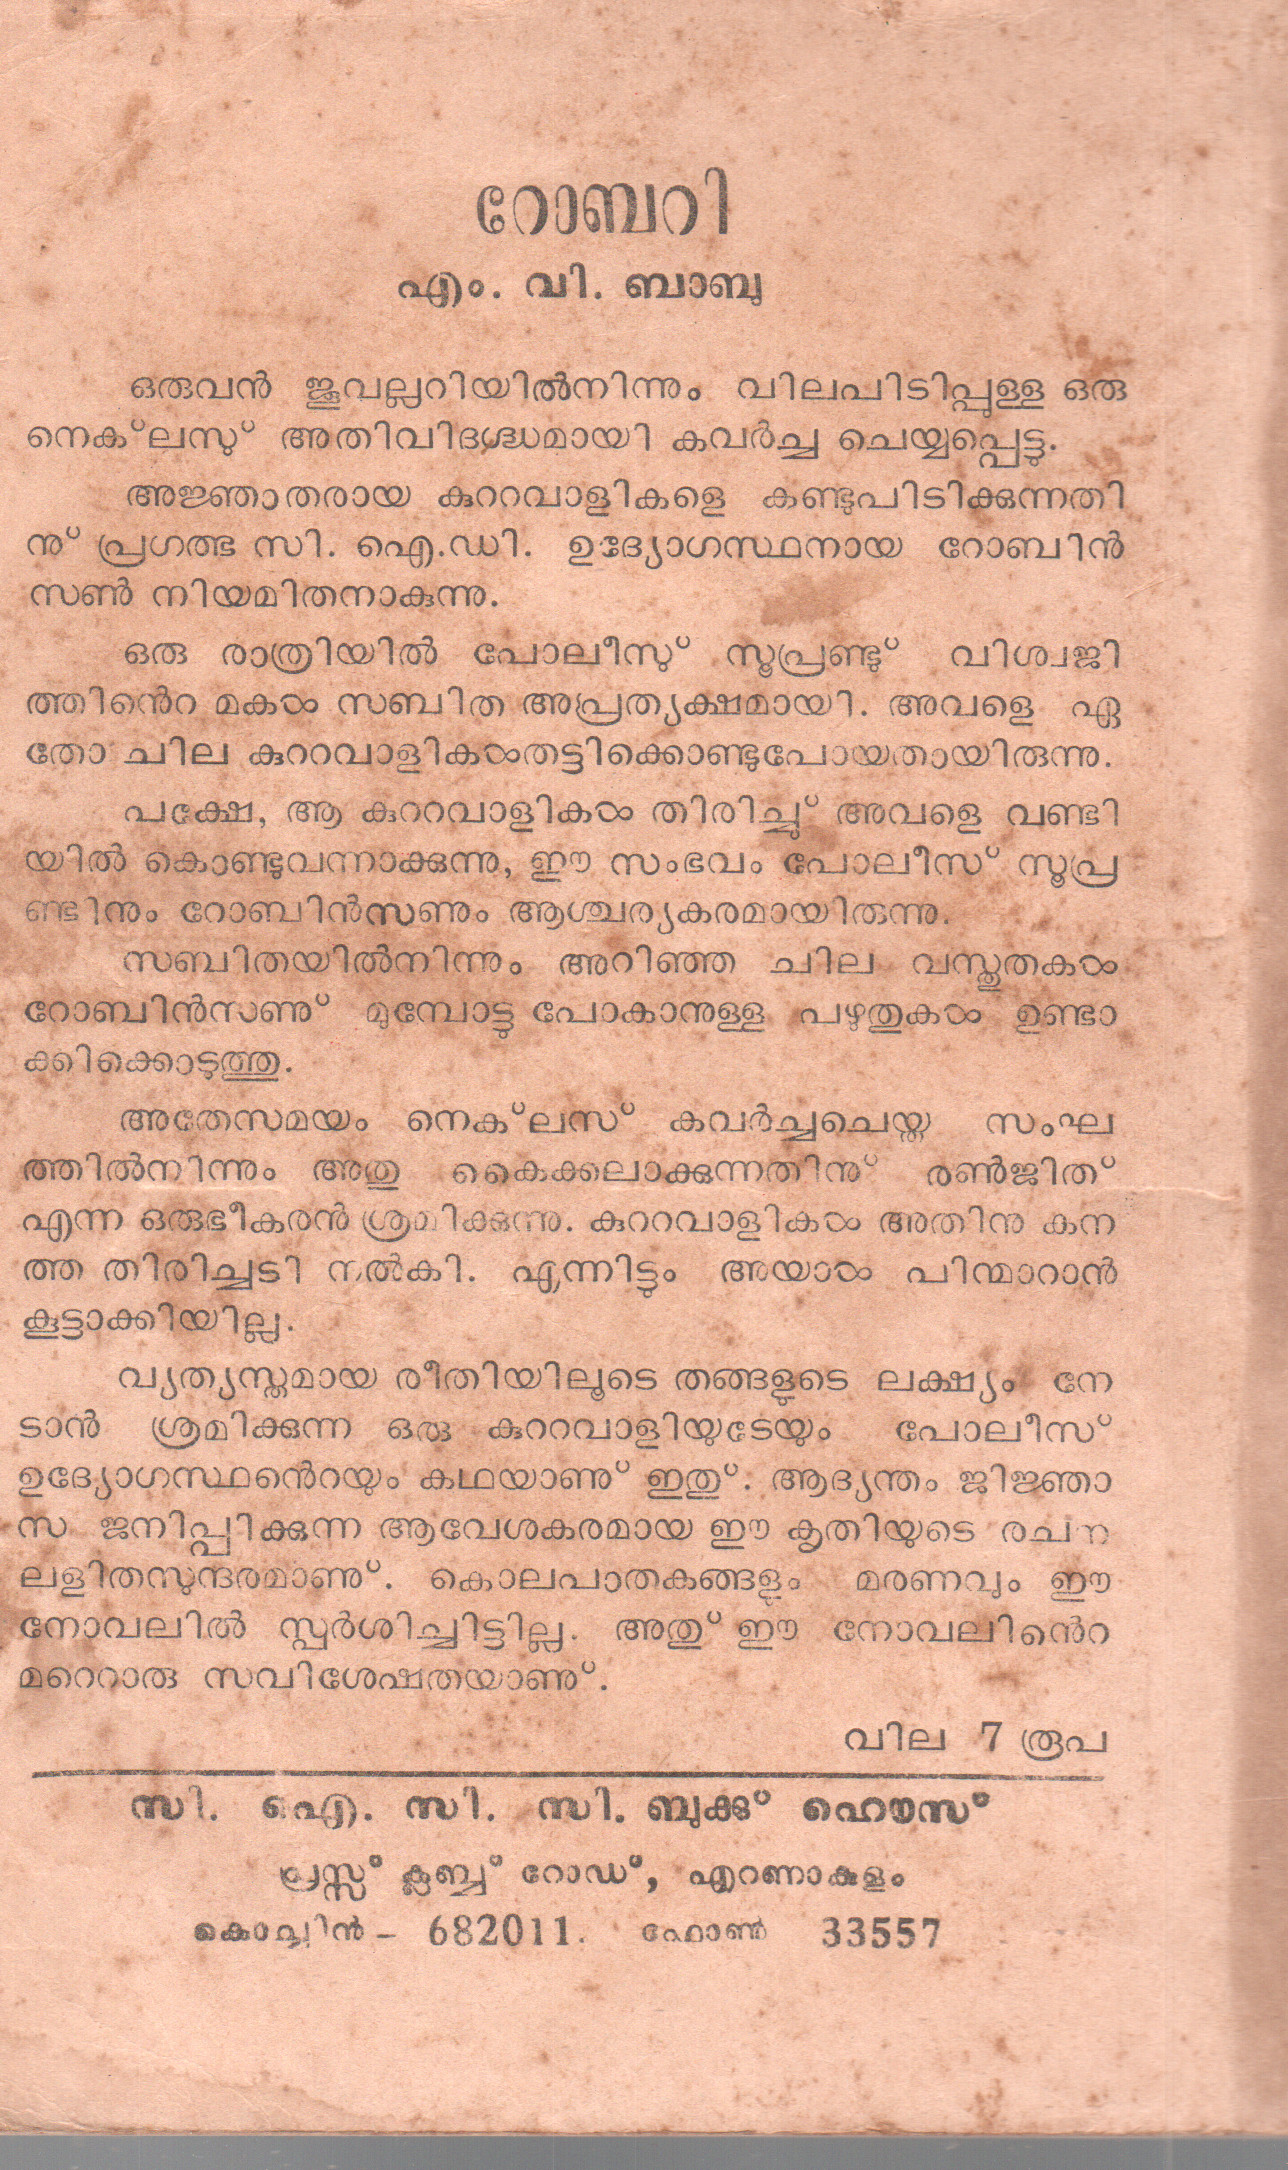 റോബറി
എം. വി. ബാബു
ഒരുവൻ ജൂവല്ലറിയിൽനിന്നും വിലപിടിപ്പുള്ള ഒരു
നെക്‌ലസു് അതിവിദഗ്ദ്ധമായി കവർച്ച ചെയ്യപ്പെട്ടു.
അജ്ഞാതരായ കുററവാളികളെ കണ്ടുപിടിക്കുന്നതി
നു് പ്രഗത്ഭ സി. ഐ.ഡി. ഉദ്യോഗസ്ഥനായ റോബിൻ
സൺ നിയമിതനാകുന്നു.
ഒരു രാത്രിയിൽ പോലീസു് സൂപ്രണ്ടു് വിശ്വജി
ത്തിൻെറ മകൾ സബിത അപ്രത്യക്ഷമായി. അവളെ ഏ
തോ ചില കുററവാളികൾതട്ടിക്കൊണ്ടുപോയതായിരുന്നു.
പക്ഷേ, ആ കുററവാളികൾ തിരിച്ചു് അവളെ വണ്ടി
യിൽ കൊണ്ടുവന്നാക്കുന്നു, ഈ സംഭവം പോലീസ് സൂപ്ര
ണ്ടിനും റോബിൻസണും ആശ്ചര്യകരമായിരുന്നു.
സബിതയിൽനിന്നും അറിഞ്ഞ ചില വസ്തുതകൾ
റോബിൻസണു് മുമ്പോട്ടു പോകാനുള്ള പഴുതുകൾ ഉണ്ടാ
ക്കിക്കൊടുത്തു.
അതേസമയം നെക്‌ലസ് കവർച്ചചെയ്ത സംഘ
ത്തിൽനിന്നും അതു കൈക്കലാക്കുന്നതിനു് രൺജിത്
എന്ന ഒരുഭീകരൻ ശ്രമിക്കുന്നു. കുററവാളികൾ അതിനു കന
ത്ത തിരിച്ചടി നൽകി. എന്നിട്ടും അയാൾ പിന്മാറാൻ
കൂട്ടാക്കിയില്ല.
വ്യത്യസ്തമായ രീതിയിലൂടെ തങ്ങളുടെ ലക്ഷ്യം നേ
ടാൻ ശ്രമിക്കുന്ന ഒരു കുററവാളിയുടേയും പോലീസ്
ഉദ്യോഗസ്ഥൻെറയും കഥയാണു് ഇതു്. ആദ്യന്തം ജിജ്ഞാ
സ ജനിപ്പിക്കുന്ന ആവേശകരമായ ഈ കൃതിയുടെ രചന
ലളിതസുന്ദരമാണു്. കൊലപാതകങ്ങളും മരണവും ഈ
നോവലിൽ സ്പർശിച്ചിട്ടില്ല. അതു് ഈ നോവലിൻെറ
മറെറാരു സവിശേഷതയാണു്.
വില 7 രൂപ
സി. ഐ. സി. സി. ബുക്കു് ഹൌസ്
പ്രസ്സ് ക്ലബ്ബ് റോഡ്, എറണാകുളം
കൊച്ചിൻ - 682011. ഫോൺ 33557